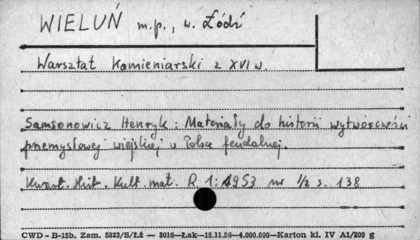 WIELUŃ m.p., w. Łódź
Warsztat Kamieniarski z XVI w.
Samsonowicz Henryk: Materiały do historii wytwórczości
przemysłowej wiejskiej w Polsce feudalnej.
Kwart. Hist. Kult. mat. R. 1: 1953 nr 1/2 s. 138
CWD - B-15b. Zam. 5823/S/Łź — 3016—Łak—15.11.56—4.000.000—Karton kl. IV A1/200 g